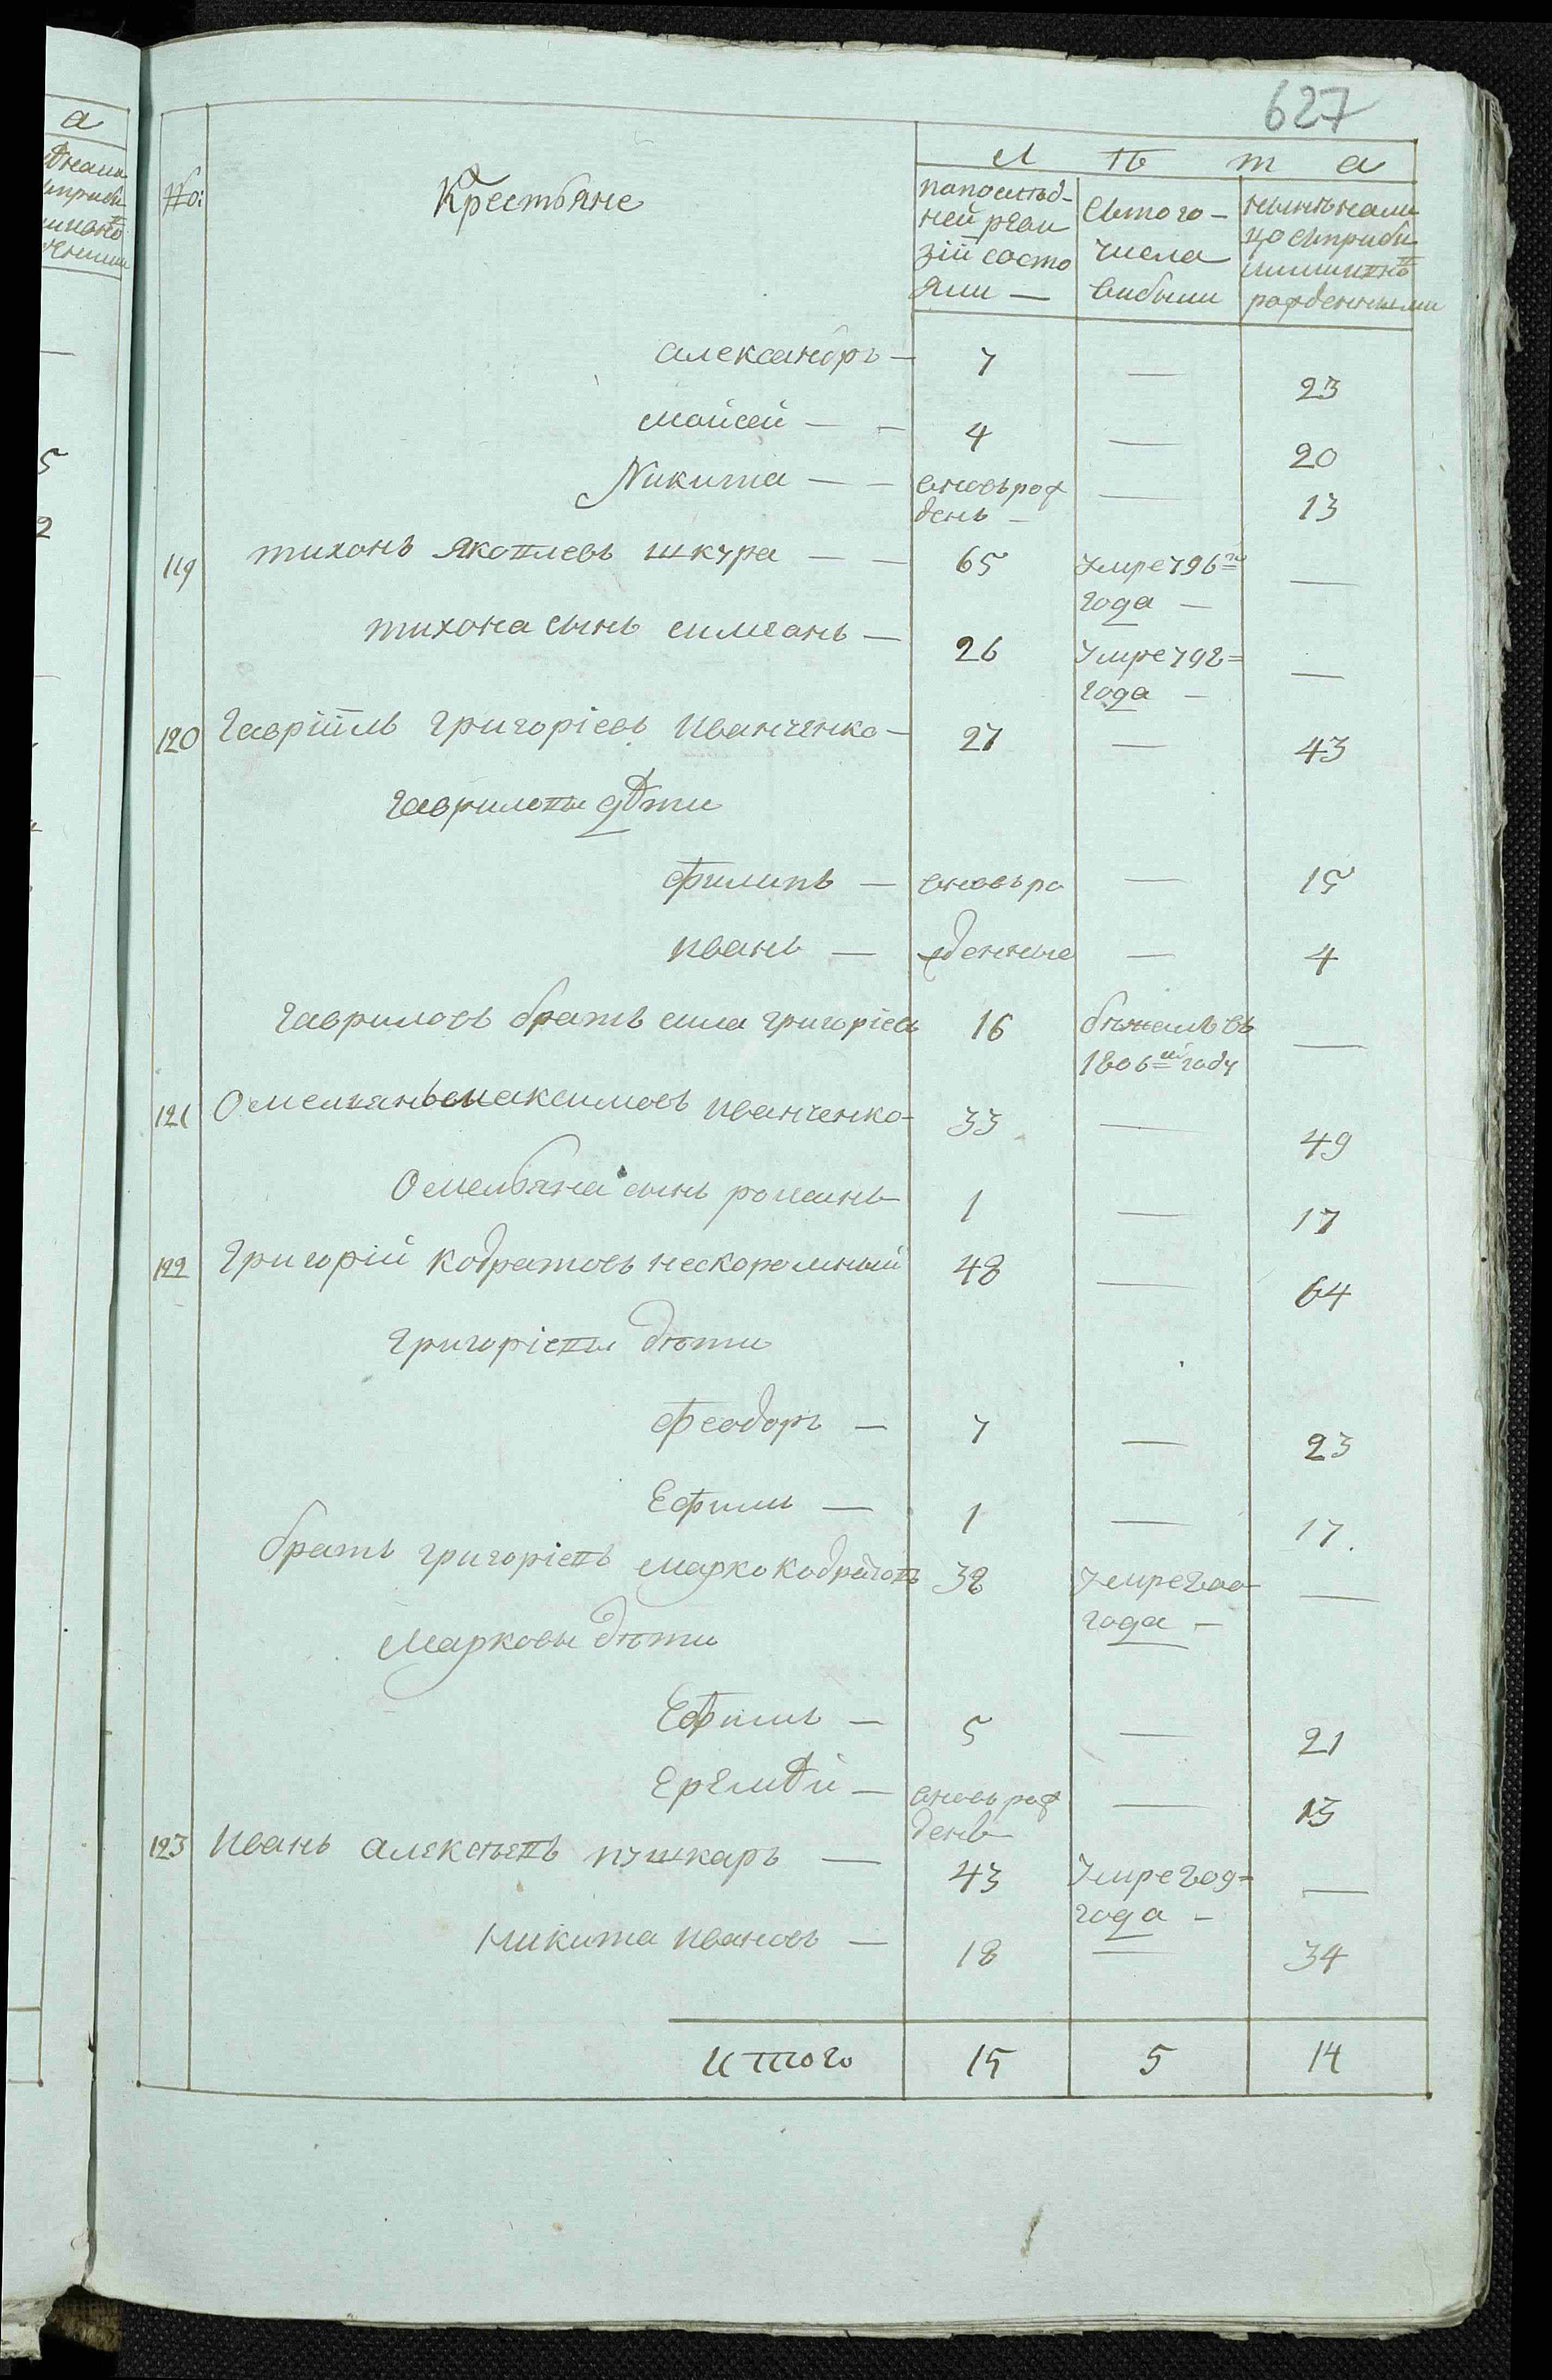 627
№:
Крестьяне
Лѣта
по последней ревизіи состояли —
Ис того числа выбыли
ныне на лицо
рожденными
александръ — 7 — 23
моисей — — 4 — 20
Никита — — вновь рожденъ — — 13
119 тихонъ Яковлевъ шкура — — 65 Умре 796го года — —
тихона сынъ симеонъ — 26 Умре 798= года — —
120 Гавріилъ григоріевъ иванченко — 27 — 43
гавриловы дѣти
филипъ — вновь ро — 15
иванъ — жденные — 4
гавриловъ братъ сила григоріевъ 16 бежалъ въ 1806м году —
121 Омельянъ максимовъ иванченко — 33 — 49
Омельяна сынъ романъ 1 — 17
122 Григорій кодратовъ нескоромный 48 — 64
григоріевы дѣти
феодоръ — 7 — 23
Ефимъ — 1 — 17.
братъ григоріевъ марко кодратовъ 38 Умре 800 года — —
Марковы дѣти
Ефимъ — 5 — 21
Еремѣй — вновь рожденъ — 13
123 Иванъ алексѣевъ пушкаръ — 43 Умре 809= года — —
никита ивановъ — 18 — 34
Итого 15 5 14